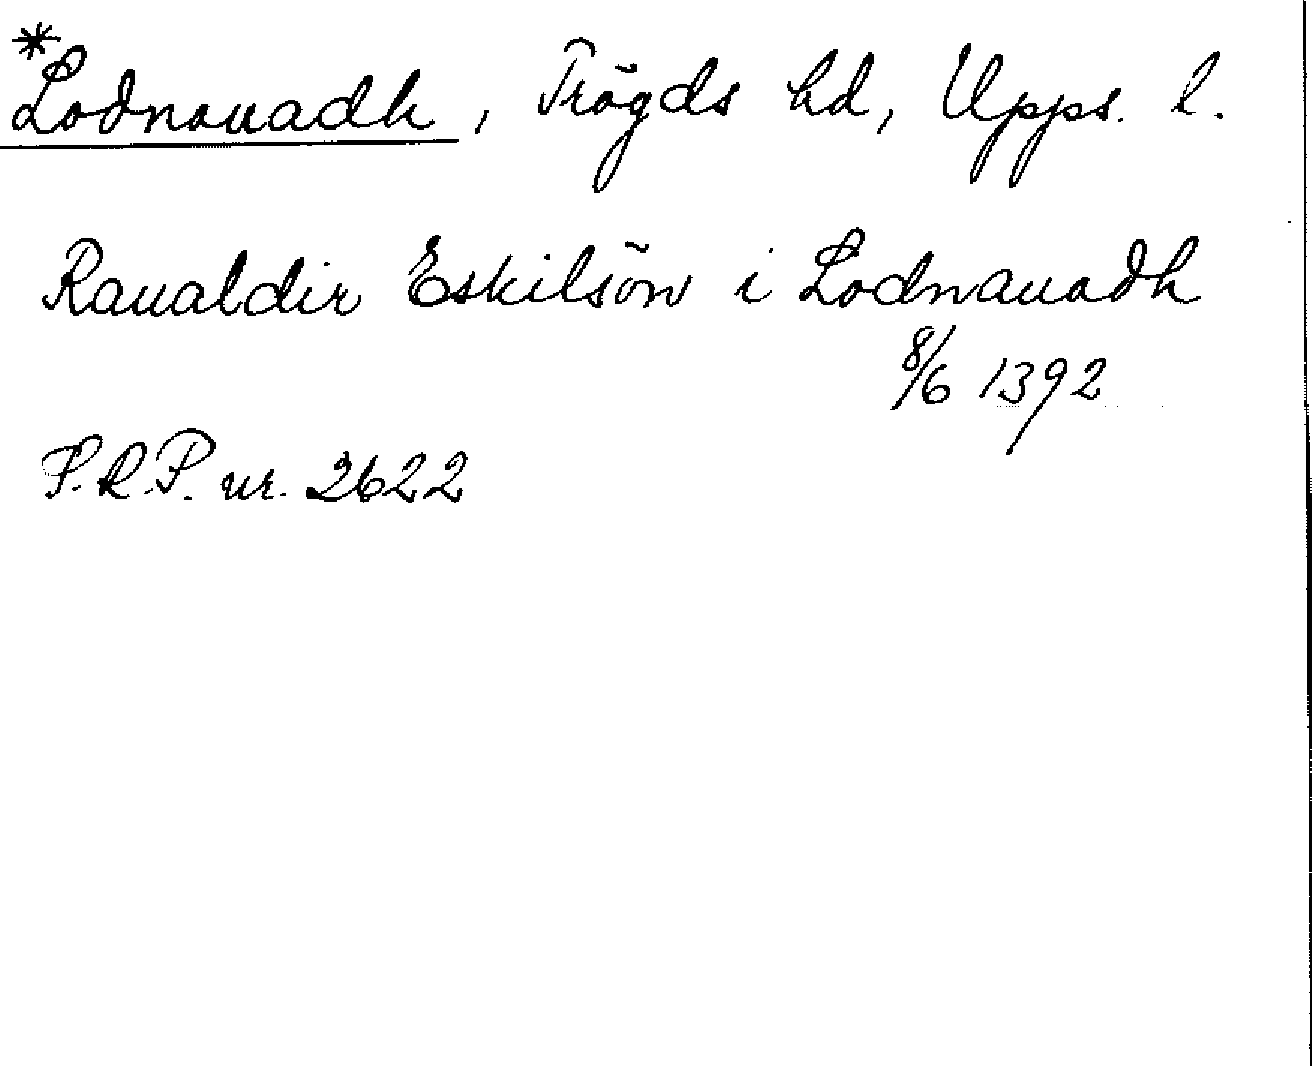 *Lodnauadh, Trögds hd, Upps. l.
Raualdir Eskilsön i Lodnauadh
8/6 1392
S.R.P. nr. 2622